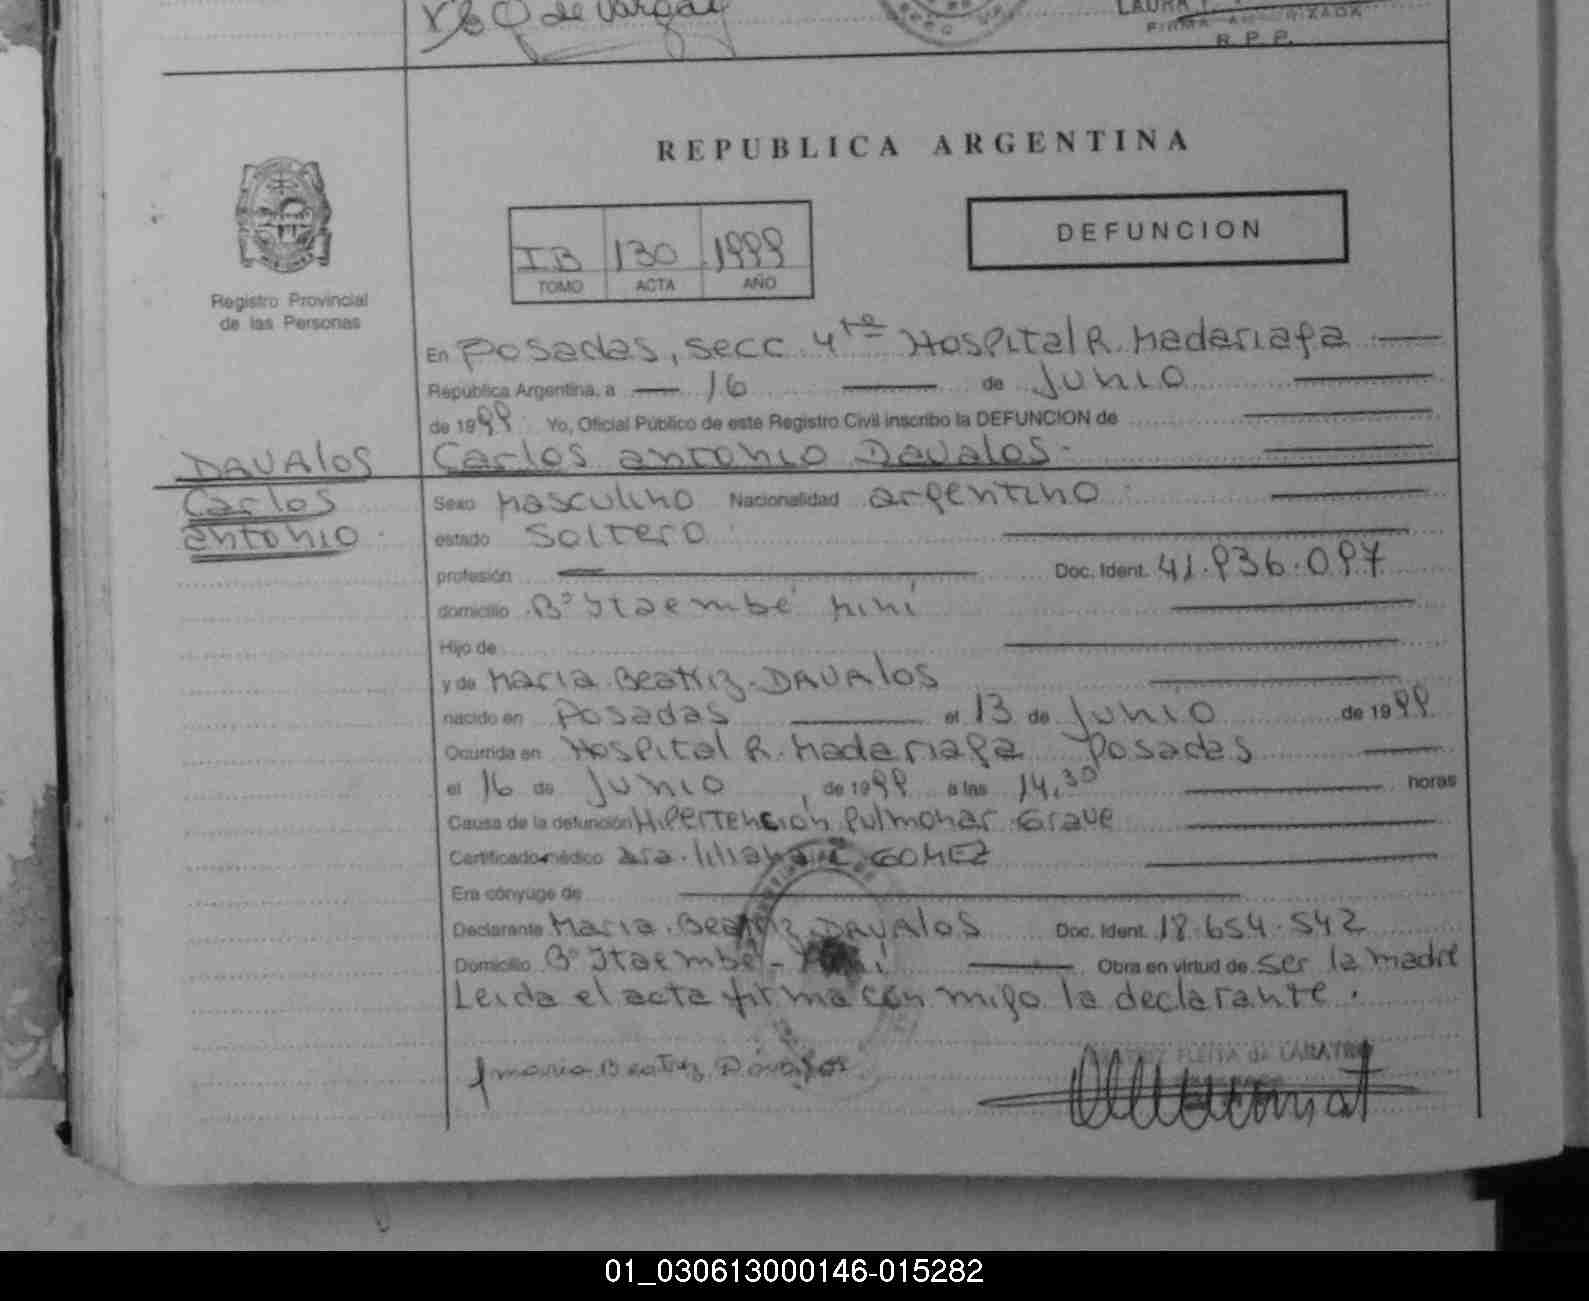 de Vargas
LAURA
FIRMA AUTORIZADA
R. P. P.
REPUBLICA ARGENTINA
DEFUNCION
IB 130 1999
TOMO ACTA AÑO
Registro Provincial
de las Personas
En Posadas, secc 4ta Hospital R. Madariaga
República Argentina, a 16 de Junio
de 1999 Yo, Oficial Público de este Registro Civil inscribo la DEFUNCION de
DAVAlos Carlos antonio Davalos.
Carlos
antonio
Sexo Masculino Nacionalidad argentino
estado Soltero
profesión Doc. Ident. 41.936.097
domicilio Bº Itaembé mini
Hijo de
y de Maria Beatriz DAVAlos
nacido en Posadas el 13 de Junio de 1999
Ocurrida en Hospital R. Madariaga Posadas
el 16 de Junio de 1999 a las 14,30 horas
Causa de la defunción Hipertención Pulmonar Grave
Certificado médico Dra. liliana GOMEZ
Era cónyuge de
Declarante Maria Beatriz DAVAlos Doc. Ident. 18.654.542
Domicilio Bº Itaembé Obra en virtud de ser la madre
Leida el acta firma con migo la declarante.
maria Beatriz Dávalos
01_030613000146-015282